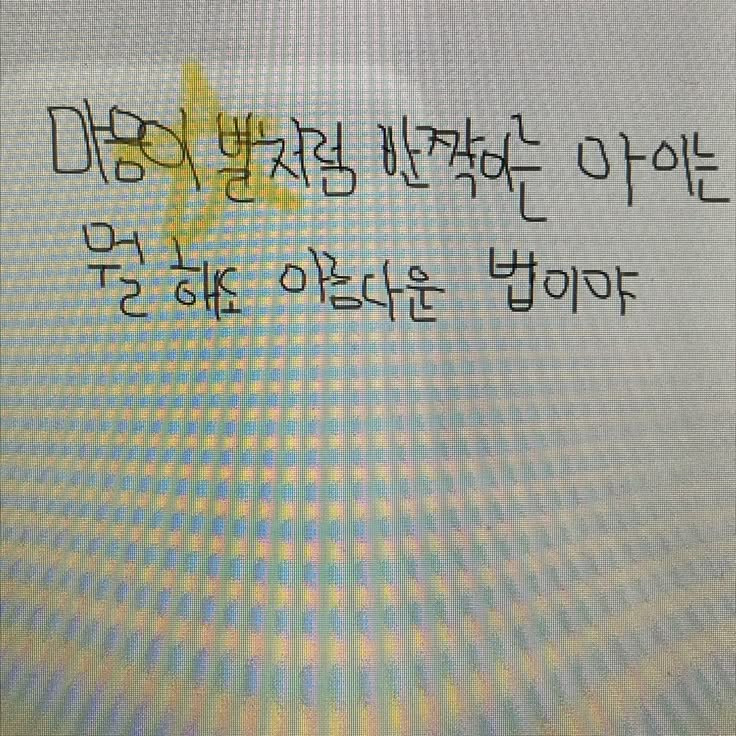 마음이 별처럼 반짝이는 아이는
뭘 해도 아름다운 법이야